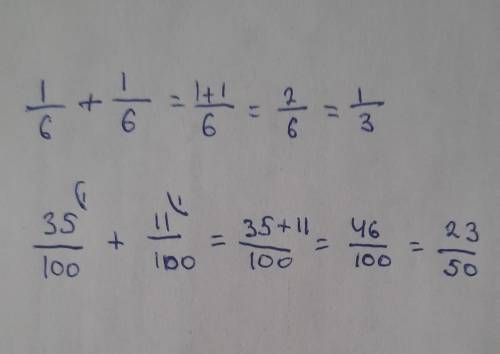 1/6 + 1/6 = 1+1/6 = 2/6 = 1/3
35/100 + 11/100 = 35+11/100 = 46/100 = 23/50